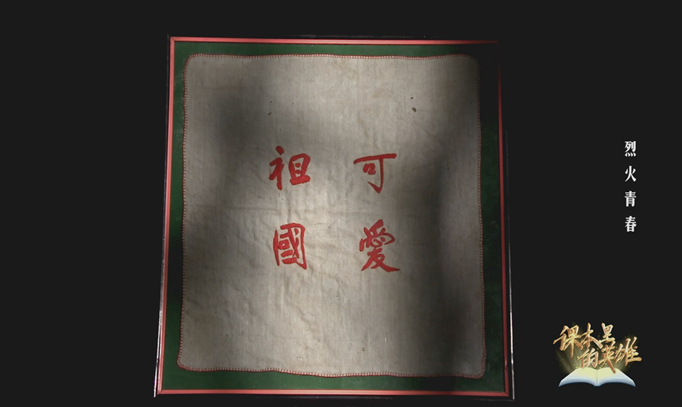 可愛
祖國
烈火青春
课本里
的英雄